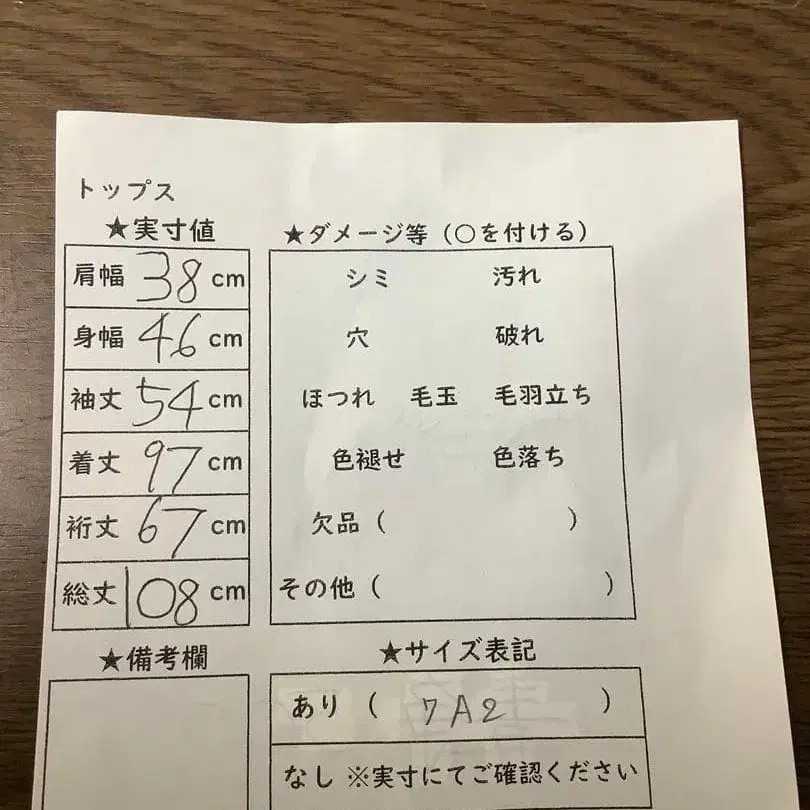 トップス
★実寸値
肩幅 38 cm
身幅 46 cm
袖丈 54 cm
着丈 97 cm
裄丈 67 cm
総丈 108 cm
★備考欄
★ダメージ等（○を付ける）
シミ 汚れ
穴 破れ
ほつれ 毛玉 毛羽立ち
色褪せ 色落ち
欠品（ ）
その他（ ）
★サイズ表記
あり（ 7A2 ）
なし ※実寸にてご確認ください